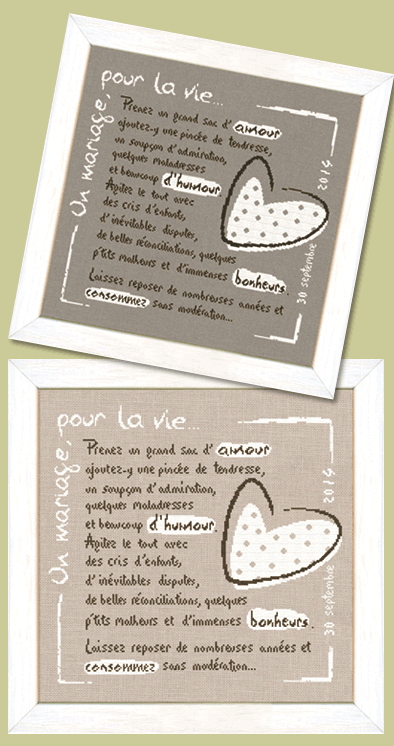 Un mariage,
pour la vie...
Prenez un grand sac d' amour
ajoutez-y une pincée de tendresse,
un soupçon d'admiration,
quelques maladresses
et beaucoup d'humour.
Agitez le tout avec
des cris d'enfants,
d'inévitables disputes,
de belles réconciliations, quelques
p'tits malheurs et d'immenses bonheurs.
Laissez reposer de nombreuses années et
consommez sans modération...
30 septembre 2014
Un mariage,
pour la vie...
Prenez un grand sac d' amour
ajoutez-y une pincée de tendresse,
un soupçon d'admiration,
quelques maladresses
et beaucoup d'humour.
Agitez le tout avec
des cris d'enfants,
d'inévitables disputes,
de belles réconciliations, quelques
p'tits malheurs et d'immenses bonheurs.
Laissez reposer de nombreuses années et
consommez sans modération...
30 septembre 2014